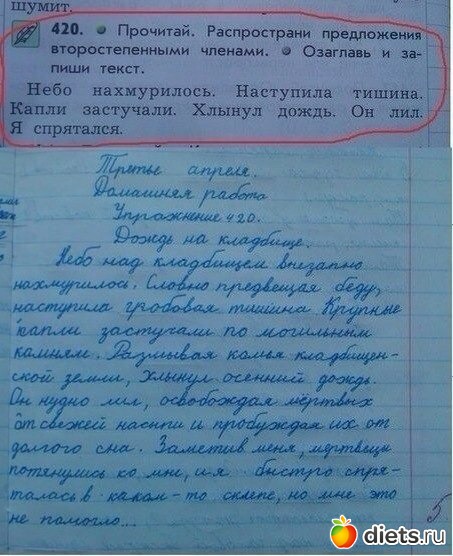 шумит.
420. • Прочитай. Распространи предложения
второстепенными членами. • Озаглавь и за-
пиши текст.
Небо нахмурилось. Наступила тишина.
Капли застучали. Хлынул дождь. Он лил.
Я спрятался.
Третье апреля.
Домашняя работа
Упражнение 420.
Дождь на кладбище.
Небо над кладбищем внезапно
нахмурилось. Словно предвещая беду,
наступила гробовая тишина. Крупные
капли застучали по могильным
камням. Размывая комья кладбищен-
ской земли, хлынул осенний дождь.
Он нудно лил, освобождая мёртвых
от свежей насыпи и пробуждая их от
долгого сна. Заметив меня, мертвецы
потянулись ко мне, и я быстро спря-
талась в каком-то склепе, но мне это
не помогло...
5
diets.ru